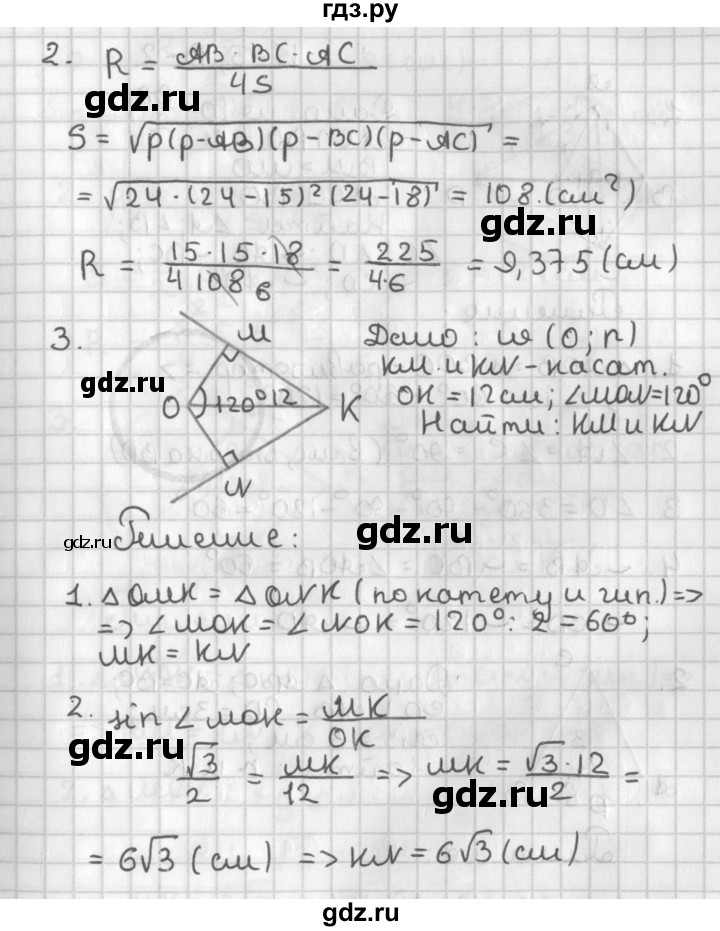 гдз.ру
2. R = AB · BC · AC / 4S
gdz.ru
S = √p(p-AB)(p-BC)(p-AC) =
= √24·(24-15)²(24-18) = 108 (см²)
gdz.ru
R = 15·15·18 / 4 108 6 = 225 / 4·6 = 9,375 (см)
3. M Дано: w (O; r)
gdz.ru KM и KN - касат.
O 120° 12 K OK = 12 см; ∠MON = 120°
Найти: KM и KN
N
gdz.ru
gdz.ru Решение:
1. △OMK = △ONK (по катету и гип.) =>
=> ∠MOK = ∠NOK = 120° : 2 = 60°;
MK = KN
2. sin ∠MOK = MK / OK
gdz.ru
√3 / 2 = MK / 12 => MK = √3 · 12 / 2 =
gdz.ru
= 6√3 (см) => KN = 6√3 (см)
gdz.ru